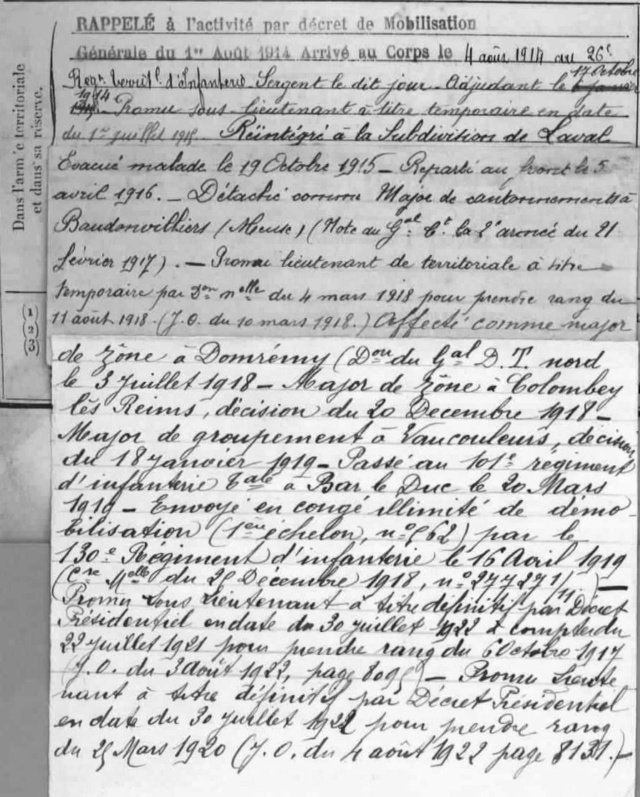 RAPPELÉ à l'activité par décret de Mobilisation
Générale du 1er Août 1914 Arrivé au Corps le 4 août 1914 au 26e
Regt territ. d'Infanterie. Sergent le dit jour. Adjudant le 17 Octobre
1914 – Promu sous lieutenant à titre temporaire en date
du 1er juillet 1915 Réintégré à la Subdivision de Laval
Evacué malade le 19 Octobre 1915 – Reparti au front le 5
avril 1916. – Détaché comme Major de cantonnements à
Baudonvilliers (Meuse) (Note du Gal Ct la 2e armée du 21
février 1917). – Promu lieutenant de territoriale à titre
temporaire par Don nelle du 4 mars 1918 pour prendre rang du
11 août 1918. (J.O. du 10 mars 1918.) Affecté comme major
de zône à Domrémy (Don du Gal D.T. nord
le 3 juillet 1918 – Major de zône à Colombey
lès Reims, décision du 20 Decembre 1918 –
Major de groupement à Vaucouleurs, décision
du 18 janvier 1919 – Passé au 101e régiment
d'infanterie tale à Bar le Duc le 20 Mars
1919 – Envoyé en congé illimité de démo-
bilisation (1er échelon, no 562) par le
130e Régiment d'infanterie le 16 Avril 1919
(Cre Melle du 25 Decembre 1918, no 27727 1/11) –
Promu sous Lieutenant à titre définitif par Décret
Présidentiel en date du 30 juillet 1922 à compter du
22 juillet 1921 pour prendre rang du 6 Octobre 1917
(J.O. du 3 Août 1922, page 8095) – Promu Lieute
nant à titre définitif par Décret Présidentiel
en date du 30 juillet 1922 pour prendre rang
du 25 Mars 1920 (J.O. du 4 août 1922 page 8131.) –
Dans l'armée territoriale
et dans sa réserve.
1
2
3